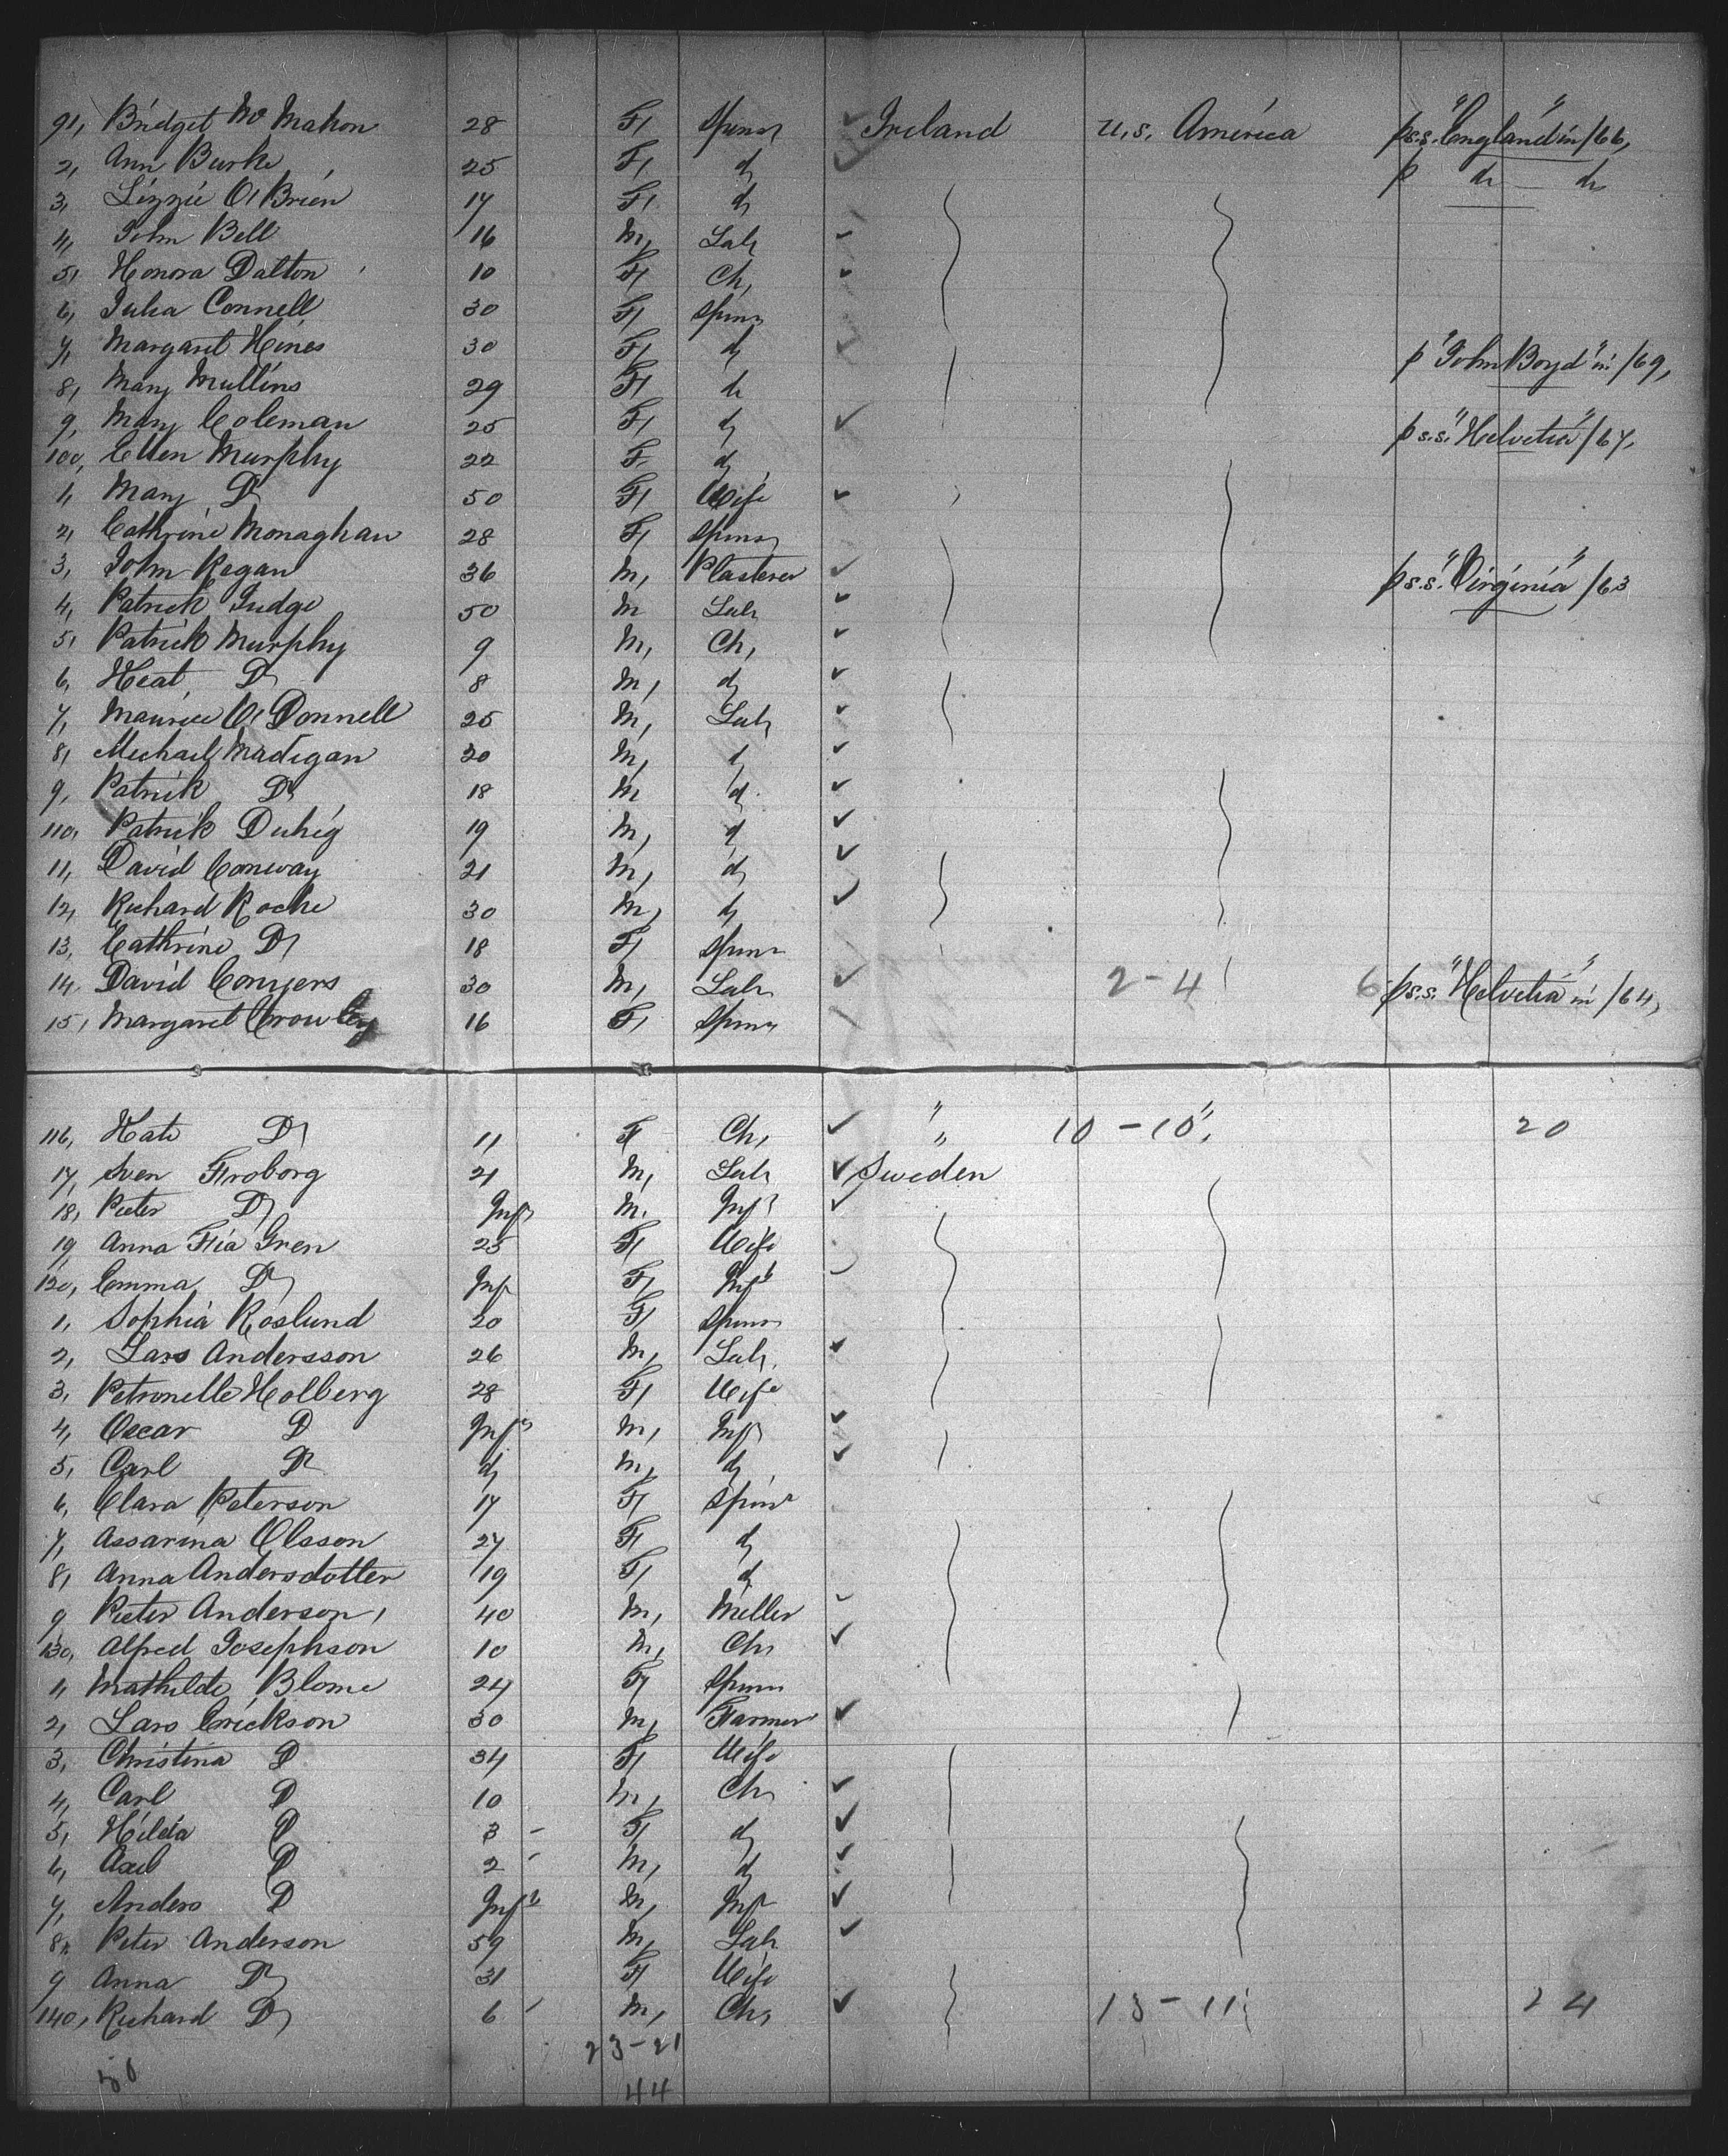 91, Bridget McMahon 28 F, Spinr Ireland U.S. America p s.s. "England" in /66,
2, Ann Burke 25 F, do p do — do
3, Lizzie O'Brien 17 F, do
4, John Bell 16 M, Labr
5, Honora Dalton 10 F, Ch,
6, Julia Connell 30 F, Spinr
7, Margaret Hines 30 F, do p "John Boyd" in /69,
8, Mary Mullins 29 F, do
9, Mary Coleman 25 F, do p s.s. "Helvetia" /67,
100, Ellen Murphy 22 F, do
1, Mary Do 50 F, Wife
2, Cathrine Monaghan 28 F, Spinr
3, John Regan 36 M, Plasterer p s.s. "Virginia" /63
4, Patrick Judge 50 M Labr
5, Patrick Murphy 9 M, Ch,
6, Do 8 M, do
7, Maurice O'Donnell 25 M, Labr
8, Michael Madigan 20 M, do
9, Patrick Do 18 M do
110, Patrick Duhig 19 M, do
11, David Conway 21 M, do
12, Richard Roche 30 M, do
13, Cathrine Do 18 F, Spinr
14, David Conyers 30 M, Labr 2-4 6 p s.s. "Helvetia" in /64,
15, Margaret Crowley 16 F, Spinr
116, Kate Do 11 F Ch, " " 10-10 " 20
17, Sven Froborg 21 M, Labr Sweden
18, Peter Do Inft M. Inft
19, Anna Fia Gren 25 F, Wife
120, Emma Do Inft F, Inft
1, Sophia Roslund 20 F, Spinr
2, Lars Andersson 26 M, Labr
3, Petronelle Holberg 28 F, Wife
4, Oscar Do Inft M, Inft
5, Carl Do do M, do
6, Clara Peterson 17 F, Spinr
7, Assarina Olsson 27 F, do
8, Anna Andersdotter 19 F, do
9 Peter Anderson, 40 M, Miller
130, Alfred Josephson 10 M, Ch,
1, Mathilde Blome 24 F, Spinr
2, Lars Erickson 30 M, Farmer
3, Christina Do 34 F, Wife
4, Carl Do 10 M, Ch,
5, Hilda Do 3 - F, do
6, Axel Do 2 - M, do
7, Anders Do Inft M, Inft
8, Peter Anderson 59 M, Labr
9 Anna Do 31 F, Wife
140, Richard Do 6 - M, Ch, 13-11 24
23-21
50 44